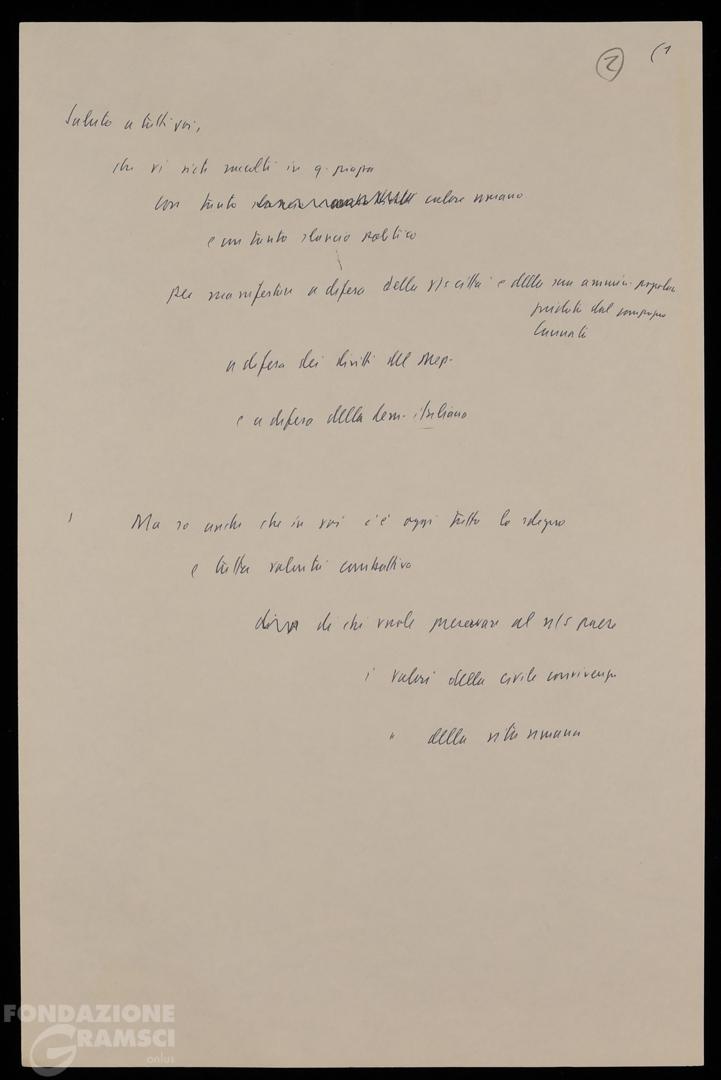 2 (1
Saluto a tutti voi,
che vi siete raccolti in q. piazza
con tanto calore umano
e con tanto slancio politico
per manifestare a difesa della n/s città e della sua ammin. popolare
guidata dal compagno
a difesa dei diritti del Mep.
e a difesa della dem. italiana
Ma so anche che in voi c'è oggi tutto lo sdegno
e tutta volontà combattiva
di chi vuole preservare al n/s paese
i valori della civile convivenza
" della vita umana
FONDAZIONE
GRAMSCI
onlus